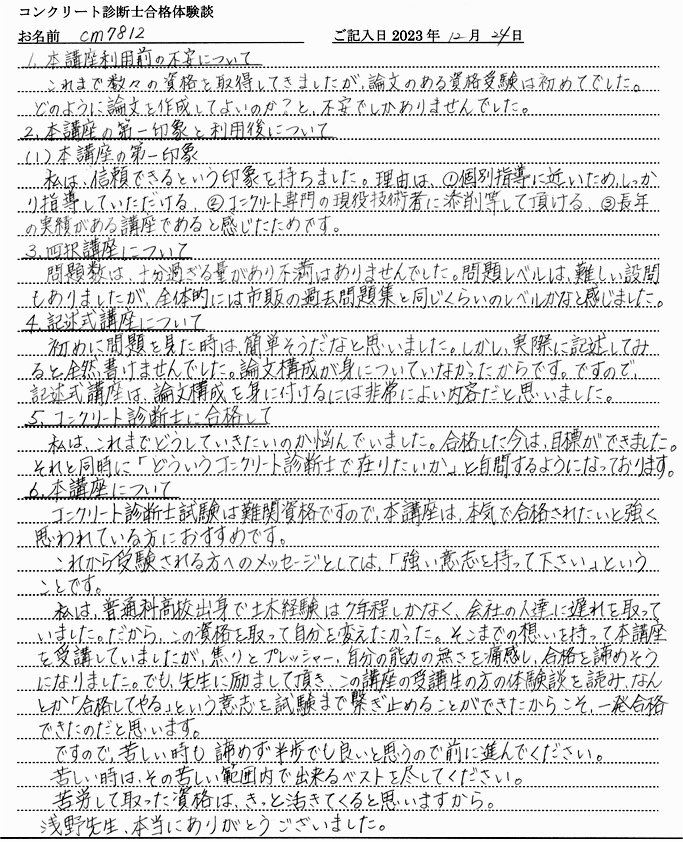 コンクリート診断士合格体験談
お名前 cm7812 ご記入日 2023 年 12 月 24 日
1. 本講座利用前の不安について
これまで数々の資格を取得してきましたが、論文のある資格受験は初めてでした。
どのように論文を作成してよいのか？と、不安でしかありませんでした。
2. 本講座の第一印象と利用後について
(1) 本講座の第一印象
私は、信頼できるという印象を持ちました。理由は、①個別指導に近いため、しっか
り指導していただける、②コンクリート専門の現役技術者に添削等して頂ける、③長年
の実績がある講座であると感じたためです。
3. 四択講座について
問題数は、十分過ぎる量があり不満はありませんでした。問題レベルは、難しい設問
もありましたが、全体的には市販の過去問題集と同じくらいのレベルかなと感じました。
4. 記述式講座について
初めに問題を見た時は、簡単そうだなと思いました。しかし、実際に記述してみ
ると全然書けませんでした。論文構成が身についていなかったからです。ですので、
記述式講座は、論文構成を身に付けるには非常によい内容だと思いました。
5. コンクリート診断士に合格して
私は、これまでどうしていきたいのか悩んでいました。合格した今は、目標ができました。
それと同時に「どういうコンクリート診断士で在りたいか」と自問するようになっております。
6. 本講座について
コンクリート診断士試験は難関資格ですので、本講座は、本気で合格されたいと強く
思われている方におすすめです。
これから受験される方へのメッセージとしては、「強い意志を持って下さい」という
ことです。
私は、普通科高校出身で土木経験は7年程しかなく、会社の人達に遅れを取って
いました。だから、この資格を取って自分を変えたかった。そこまでの想いを持って本講座
を受講していましたが、焦りとプレッシャー、自分の能力の無さを痛感し、合格を諦めそう
になりました。でも、先生に励まして頂き、この講座の受講生の方の体験談を読み、なん
とか「合格してやる」という意志を試験まで繋ぎ止めることができたからこそ、一発合格
できたのだと思います。
ですので、苦しい時も諦めず半歩でも良いと思うので前に進んでください。
苦しい時は、その苦しい範囲内で出来るベストを尽してください。
苦労して取った資格は、きっと活きてくると思いますから。
浅野先生、本当にありがとうございました。